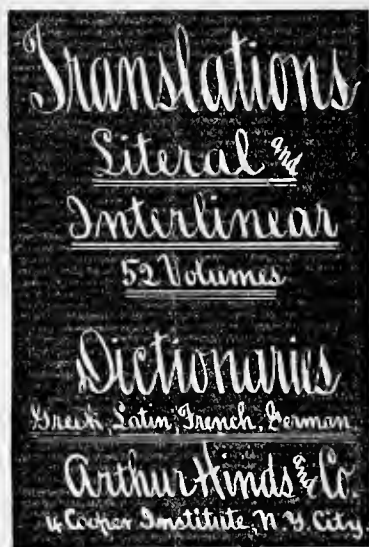 Translations
Literal and
Interlinear
52 Volumes
Dictionaries
Greek, Latin, French, German.
Arthur Hinds and Co.
4 Cooper Institute, N. Y. City.